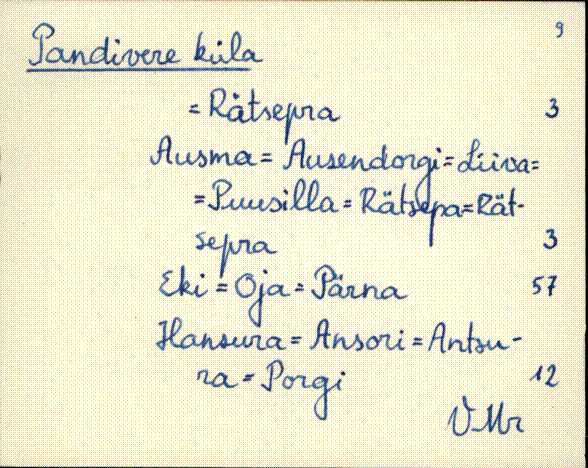 9
Pandivere küla
= Rätsepra 3
Ausma = Ausendorgi = Liiva =
= Puusilla = Rätsepa = Rät-
sepra 3
Eki = Oja = Pärna 57
Hansura = Ansori = Antsu-
ra = Porgi 12
VMr